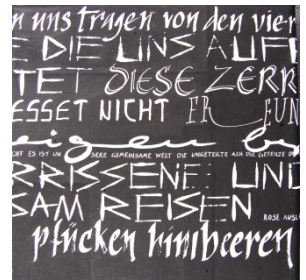 n uns tragen von den vier
E DIE UNS AUF
TET DIESE ZERR
ESSET NICHT FR EUN
eigen b
CHT ES IST UN SERE GEMEINSAME WELT DIE UNGETEILTE ACH DIE GETEILTE D
RRISSENE UND
SAM REISEN ROSE AUSL
pflücken himbeeren